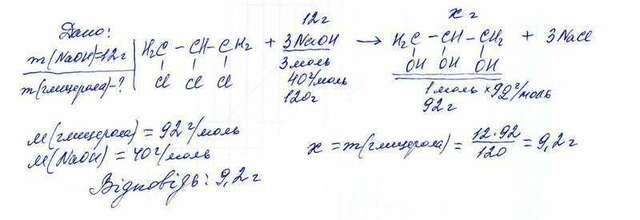 Дано:
m(NaOH)=12г
m(гліцерола)-?
12г
x г
H₂C - CH - CH₂ + 3NaOH → H₂C - CH - CH₂ + 3NaCl
Cl Cl Cl
3моль
OH OH OH
40г/моль
1моль × 92г/моль
120г
92г
M(гліцерола) = 92г/моль
M(NaOH) = 40г/моль
x = m(гліцерола) = 12·92/120 = 9,2г
Відповідь: 9,2г